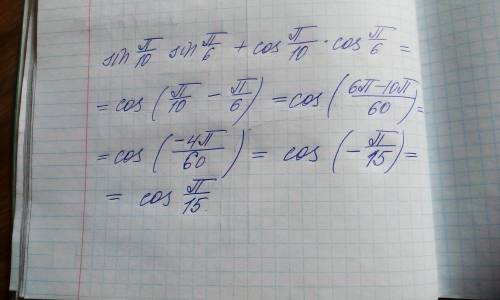 sin π/10 sin π/6 + cos π/10 · cos π/6 =
= cos (π/10 − π/6) = cos (6π−10π/60) =
= cos (−4π/60) = cos (−π/15) =
= cos π/15